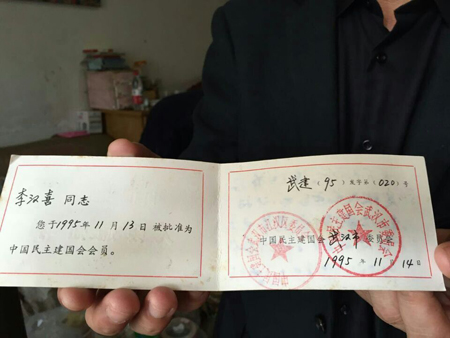 李汉喜 同志
您于1995年11月13日被批准为
中国民主建国会会员。
武建（95）发字第（020）号
中国民主建国会武汉市委员会
1995年11月14日